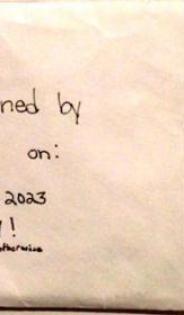 ned by
on:
2023
!
otherwise